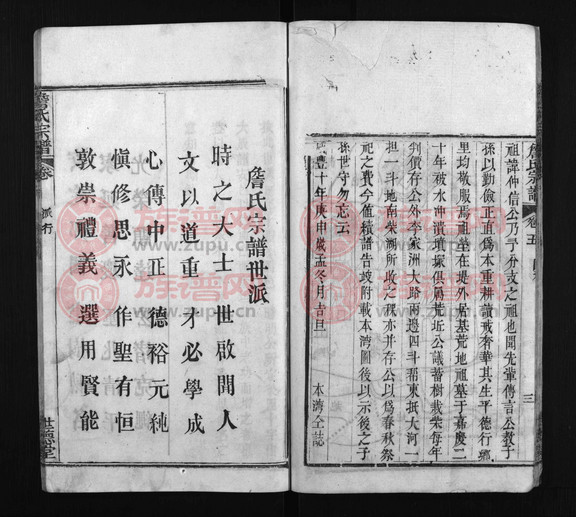 詹氏宗譜 卷五 三
祖諱仲信公乃予分支之祖也聞先輩傳言公教子
孫以勤儉正直為本重耕讀戒奢華其生平德行鄉
里均敬服焉祖墓在堤外居基荒地祖墓于嘉慶二
十年被水冲潰墳塚俱屬荒坵公議蓄樹栽柴每年
判價存公外李家洲大路兩邊四斗帮東抵大河一
担一斗地南柴湖所收之稞亦并存公以為春秋祭
祀之費今值積譜告竣附載本灣圖後以示後之子
孫世守勿忘云
咸豐十年庚申歲孟冬月吉旦
本灣仝誌
詹氏宗譜世派
時之大士 世啟聞人
文以道重 才必學成
心傳中正 德裕元純
慎修思永 作聖有恒
敦崇禮義 選用賢能
詹氏宗譜 卷 派行 世德堂
族谱网
www.zupu.cn
族谱网
www.zupu.cn
族谱网
www.zupu.cn
族谱网
www.zupu.cn